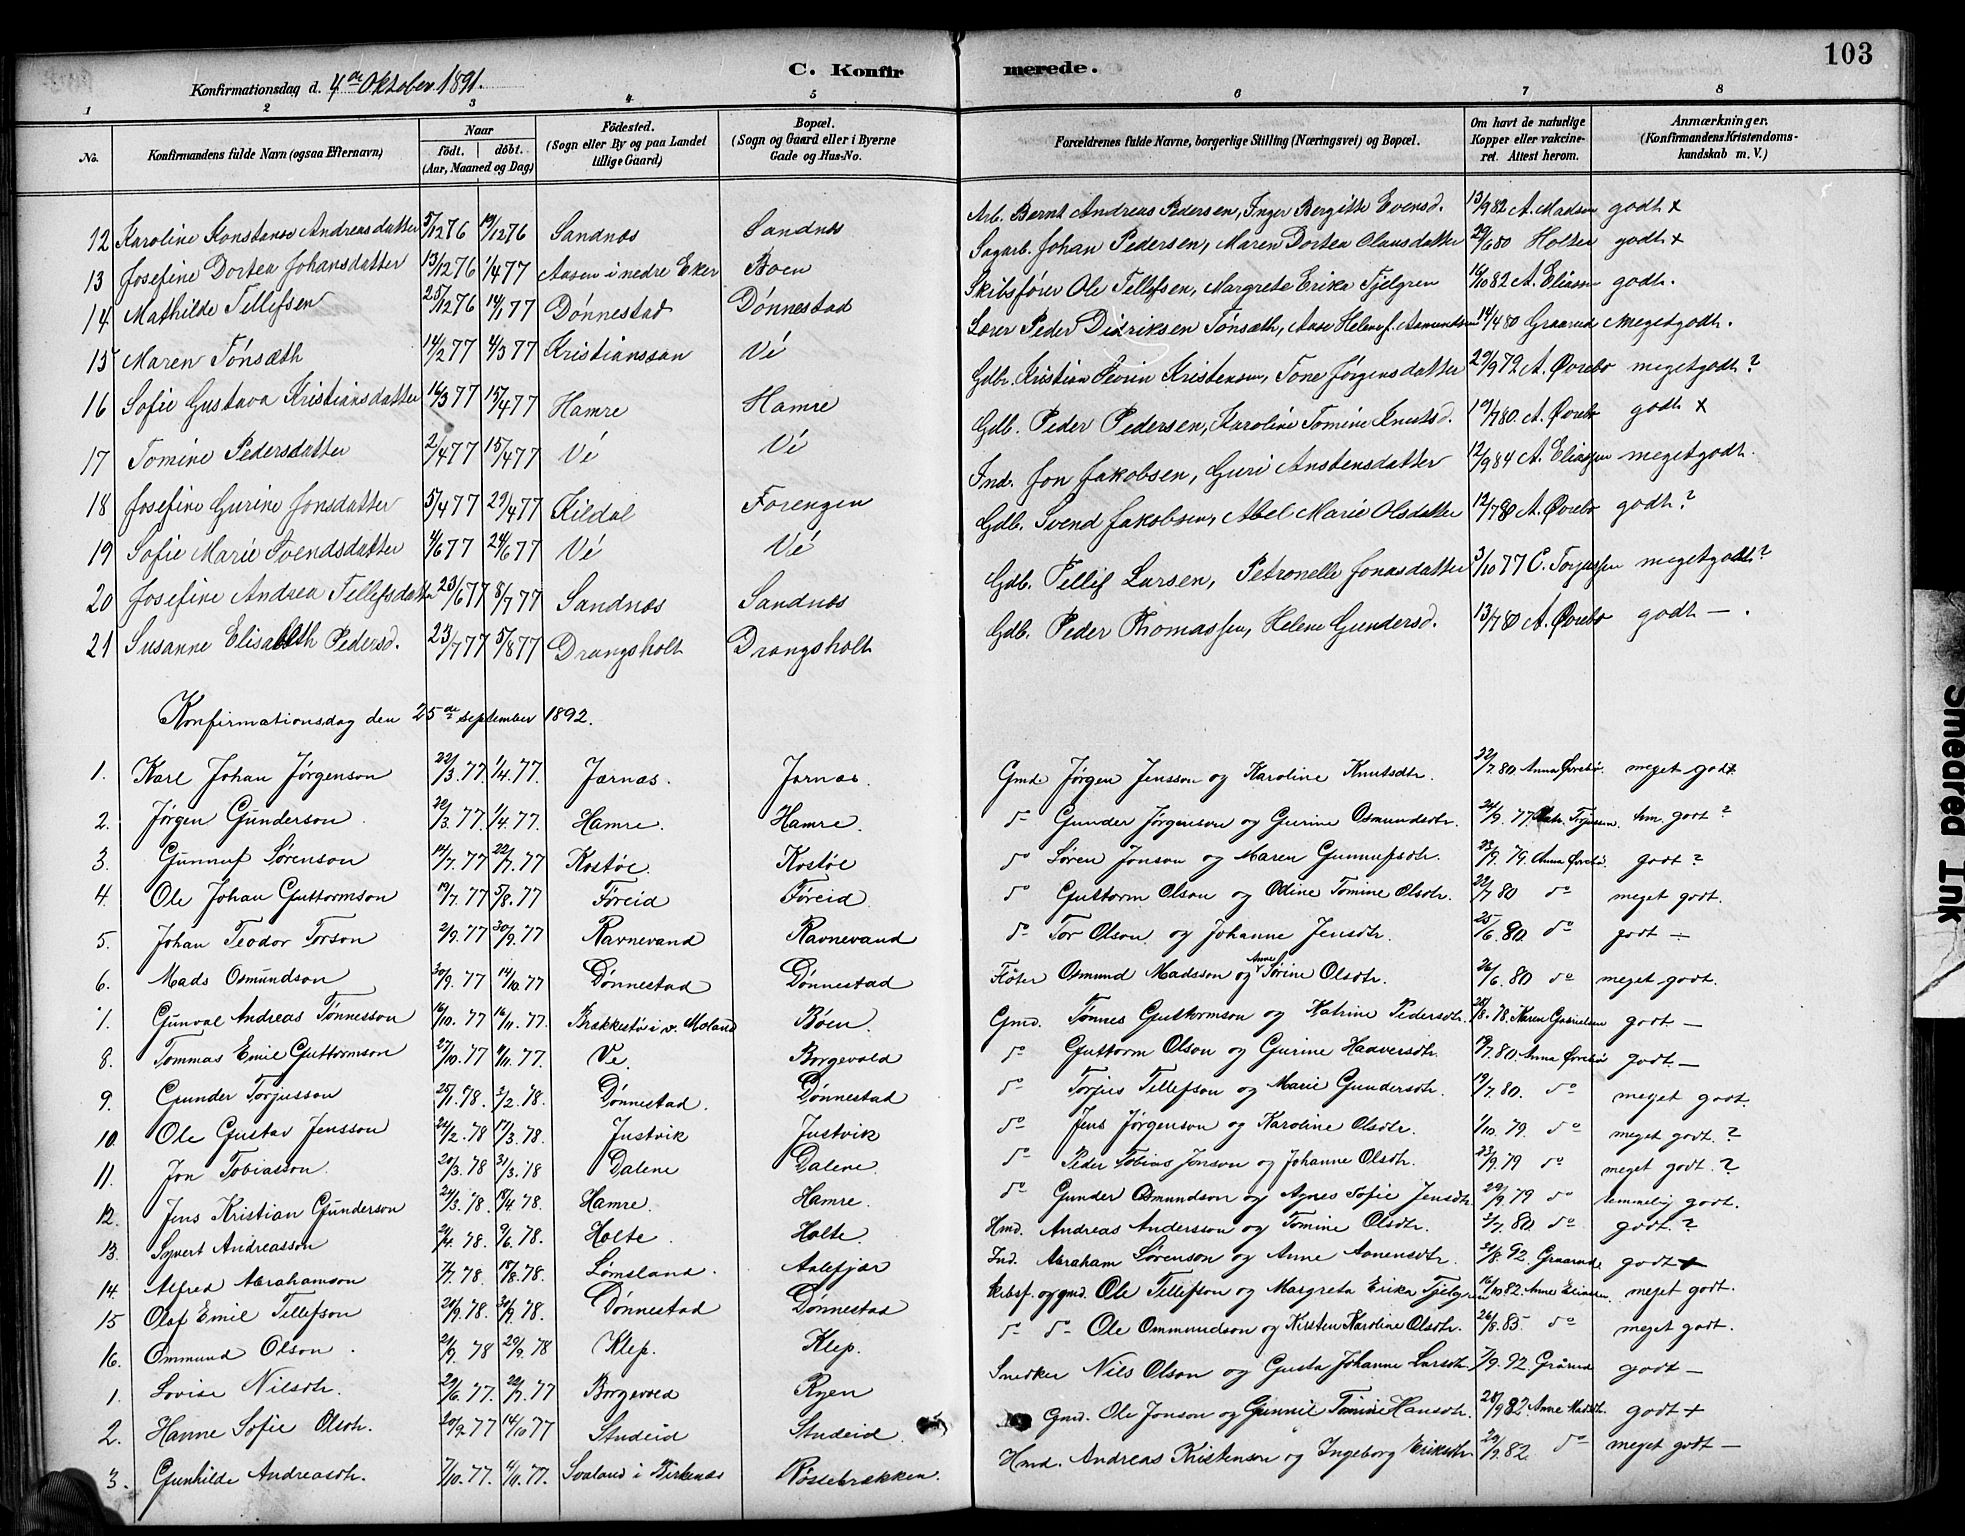 103
C. Konfirmerede.
Konfirmationsdag d. 4de Oktober 1891.
1 2 3 4 5 6 7 8
No. Konfirmandens fulde Navn (ogsaa Efternavn) Naar födt. döbt. (Aar, Maaned og Dag) Födested. (Sogn eller By og paa Landet tillige Gaard) Bopæl. (Sogn og Gaard eller i Byerne Gade og Hus-No. Forældrenes fulde Navne, borgerlige Stilling (Næringsvei) og Bopæl. Om havt de naturlige Kopper eller vakcineret. Attest herom. Anmærkninger. (Konfirmandens Kristendomskundskab m. V.)
12 Karoline Konstanse Andreasdatter 5/12 76 19/12 76 Sandnæs Sandnæs Arb. Bernt Andreas Pedersen, Inger Bergitte Evensd. 13/9 82 A. Madsen godt +
13 Josefine Dortea Johansdatter 13/12 76 1/4 77 Aasen i nedre Eker Boen Sagarb. Johan Pedersen, Maren Dortea Olausdatter 29/6 80 Holten godt +
14 Mathilde Tellefsen 25/12 76 14/1 77 Dönnestad Dönnestad Skibsförer Ole Tellefsen, Margrete Erika Fjelgren 16/10 82 A. Eliassen godt.
15 Maren Tönsæth 14/2 77 4/3 77 Kristianssan Vé Lærer Peder Didriksen Tönsæth, Aase Helene f. Asmundsen 14/4 80 Graarud megetgodt.
16 Sofie Gustava Kristiansdatter 16/3 77 15/4 77 Hamre Hamre Gdbr. Kristian Kristensen, Tone Jörgensdatter 29/9 79 A. Øvrebø megetgodt?
17 Tomine Pedersdatter 2/4 77 15/4 77 Vé Vé Gdb. Peder Pedersen, Karoline Tomine Knutsd. 19/7 80 A. Øvrebø godt +
18 Josefine Gurine Jonsdatter 5/4 77 29/4 77 Kildal Forengen Ind. Jon Jakobsen, Guri Anstensdatter 12/9 84 A. Eliassen megetgodt.
19 Sofie Marie Svendsdatter 4/6 77 24/6 77 Vé Vé Gdb. Svend Jakobsen, Abel Marie Olsdatter 12/7 80 A. Øvrebø godt?
20 Josefine Andrea Tellefsdatter 23/6 77 8/7 77 Sandnæs Sandnæs Gdb. Tellef Larsen, Petronelle Jonasdatter 3/10 77 C. Torjussen megetgodt?
21 Susanne Elisabeth Pedersd. 23/7 77 5/8 77 Drangsholt Drangsholt Gdb. Peder Thomassen, Helene Gundersd. 13/7 80 A. Øvrebø godt —.
Konfirmationsdag den 25de september 1892.
1. Karl Johan Jørgenson 22/3. 77. 1/4. 77. Jærnæs. Jærnæs. Gmd. Jørgen Jensson og Karoline Knutsdtr. 22/7. 80. Anna Øvrebø. meget godt
2. Jørgen Gunderson 22/3. 77. 1/4. 77. Hamre. Hamre. do Gunder Jørgenson og Gurine Osmundsdtr. 24/9. 77. Torjussen. tem. godt?
3. Gunnuf Sørenson 14/7. 77 22/7. 77 Kostøl. Kostøl do Søren Jonson og Maren Gunnufsdtr. 23/9. 79. Anna Øvrebø. godt?
4. Ole Johan Guttormson 19/7. 77 5/8. 77 Føreid Føreid. do Guttorm Olson og Odine Tomine Olsdtr. 22/7 80 do meget godt.
5. Johan Teodor Torson 2/9. 77 30/9. 77 Ravnevand Ravnevand do Tor Olson og Johanne Jensdtr. 25/6. 80. do godt —
6. Mads Osmundson 30/9. 77 14/10. 77 Dønnestad Dønnestad Fløter Osmund Madsson og Anne Sørine Olsdtr. 26/6. 80 do meget godt.
7. Gunval Andreas Tønnesson 16/10. 77 16/11. 77. Brækkestø i v. Moland Bøen. Gmd. Tønnes Guttormson og Katrine Pedersdtr. 28/8. 78. Karen godt —
8. Tommas Emil Guttormson 27/10. 77 11/11. 77. Ve. Borgevold do Guttorm Olson og Gurine Hadversdtr. 19/7. 80. Anna Øvrebø godt —
9. Gunder Torjusson 25/1. 78. 2/2. 78. Dønnestad. Dønnestad do Torjus Tellefson og Marie Gundersdtr. 19/7. 80. do meget godt.
10. Ole Gustav Jensson 24/2. 78 17/3. 78. Justvik Justvik do Jens Jørgenson og Karoline Olsdtr. 1/10. 79. do meget godt.?
11. Jon Tobiasson. 20/3. 78 31/3. 78 Dalene Dalene do Peder Tobias Jonson og Johanne Olsdtr. 23/9. 79 do meget godt.?
12. Jens Kristian Gunderson 24/3. 78. 18/4. 78. Hamre. Hamre. do Gunder Osmundson og Agnes Sofie Jensdtr 29/9. 79 do temmelig godt.
13. Syvert Andreasson 24/4. 78. 9/6. 78. Holte Holte. Hmd. Andreas Andersson og Tomine Olsdtr. 2/7. 80. do godt.?
14. Alfred Abrahamson 7/7. 78. 18/8. 78. Lømsland. Aalefjær Ind. Abraham Sørenson og Anne Aanensdtr. 21/8. 92. Graarud godt +
15 Olaf Emil Tellefson 20/9. 78. 30/9. 78. Dønnestad Dønnestad Skibsf. og gmd. Ole Tellefson og Margreta Erika Fjelgren 16/10 82. Anne Eliassen. meget godt.
16. Ommund Olson. 21/9. 78 29/9. 78 Klep. Klep. do do Ole Ommundson og Kirsten Karoline Olsdtr. 26/8. 85. do meget godt.
1. Lovise Nilsdtr. 29/6. 77. 22/7. 77 Borgevold Ryen Snedker Nils Olson og Gusta Johanne Larsdtr 7/9. 92. Grårud godt —
2. Hanne Sofie Olsdtr. 20/9 77 14/10 77 Studeid Studeid. Gmd. Ole Jonson og Gunnil Tomine Hansdtr. 28/9 82. Anne Madsdtr. godt +
3. Gunhilde Andreasdtr. 7/10. 77. 4/11. 77. Svaland i Birkenæs Røstebrækken. Hmd. Andreas Kristenson og Ingeborg Eriksdtr. 29/9. 82 do meget godt —
Smeared Ink